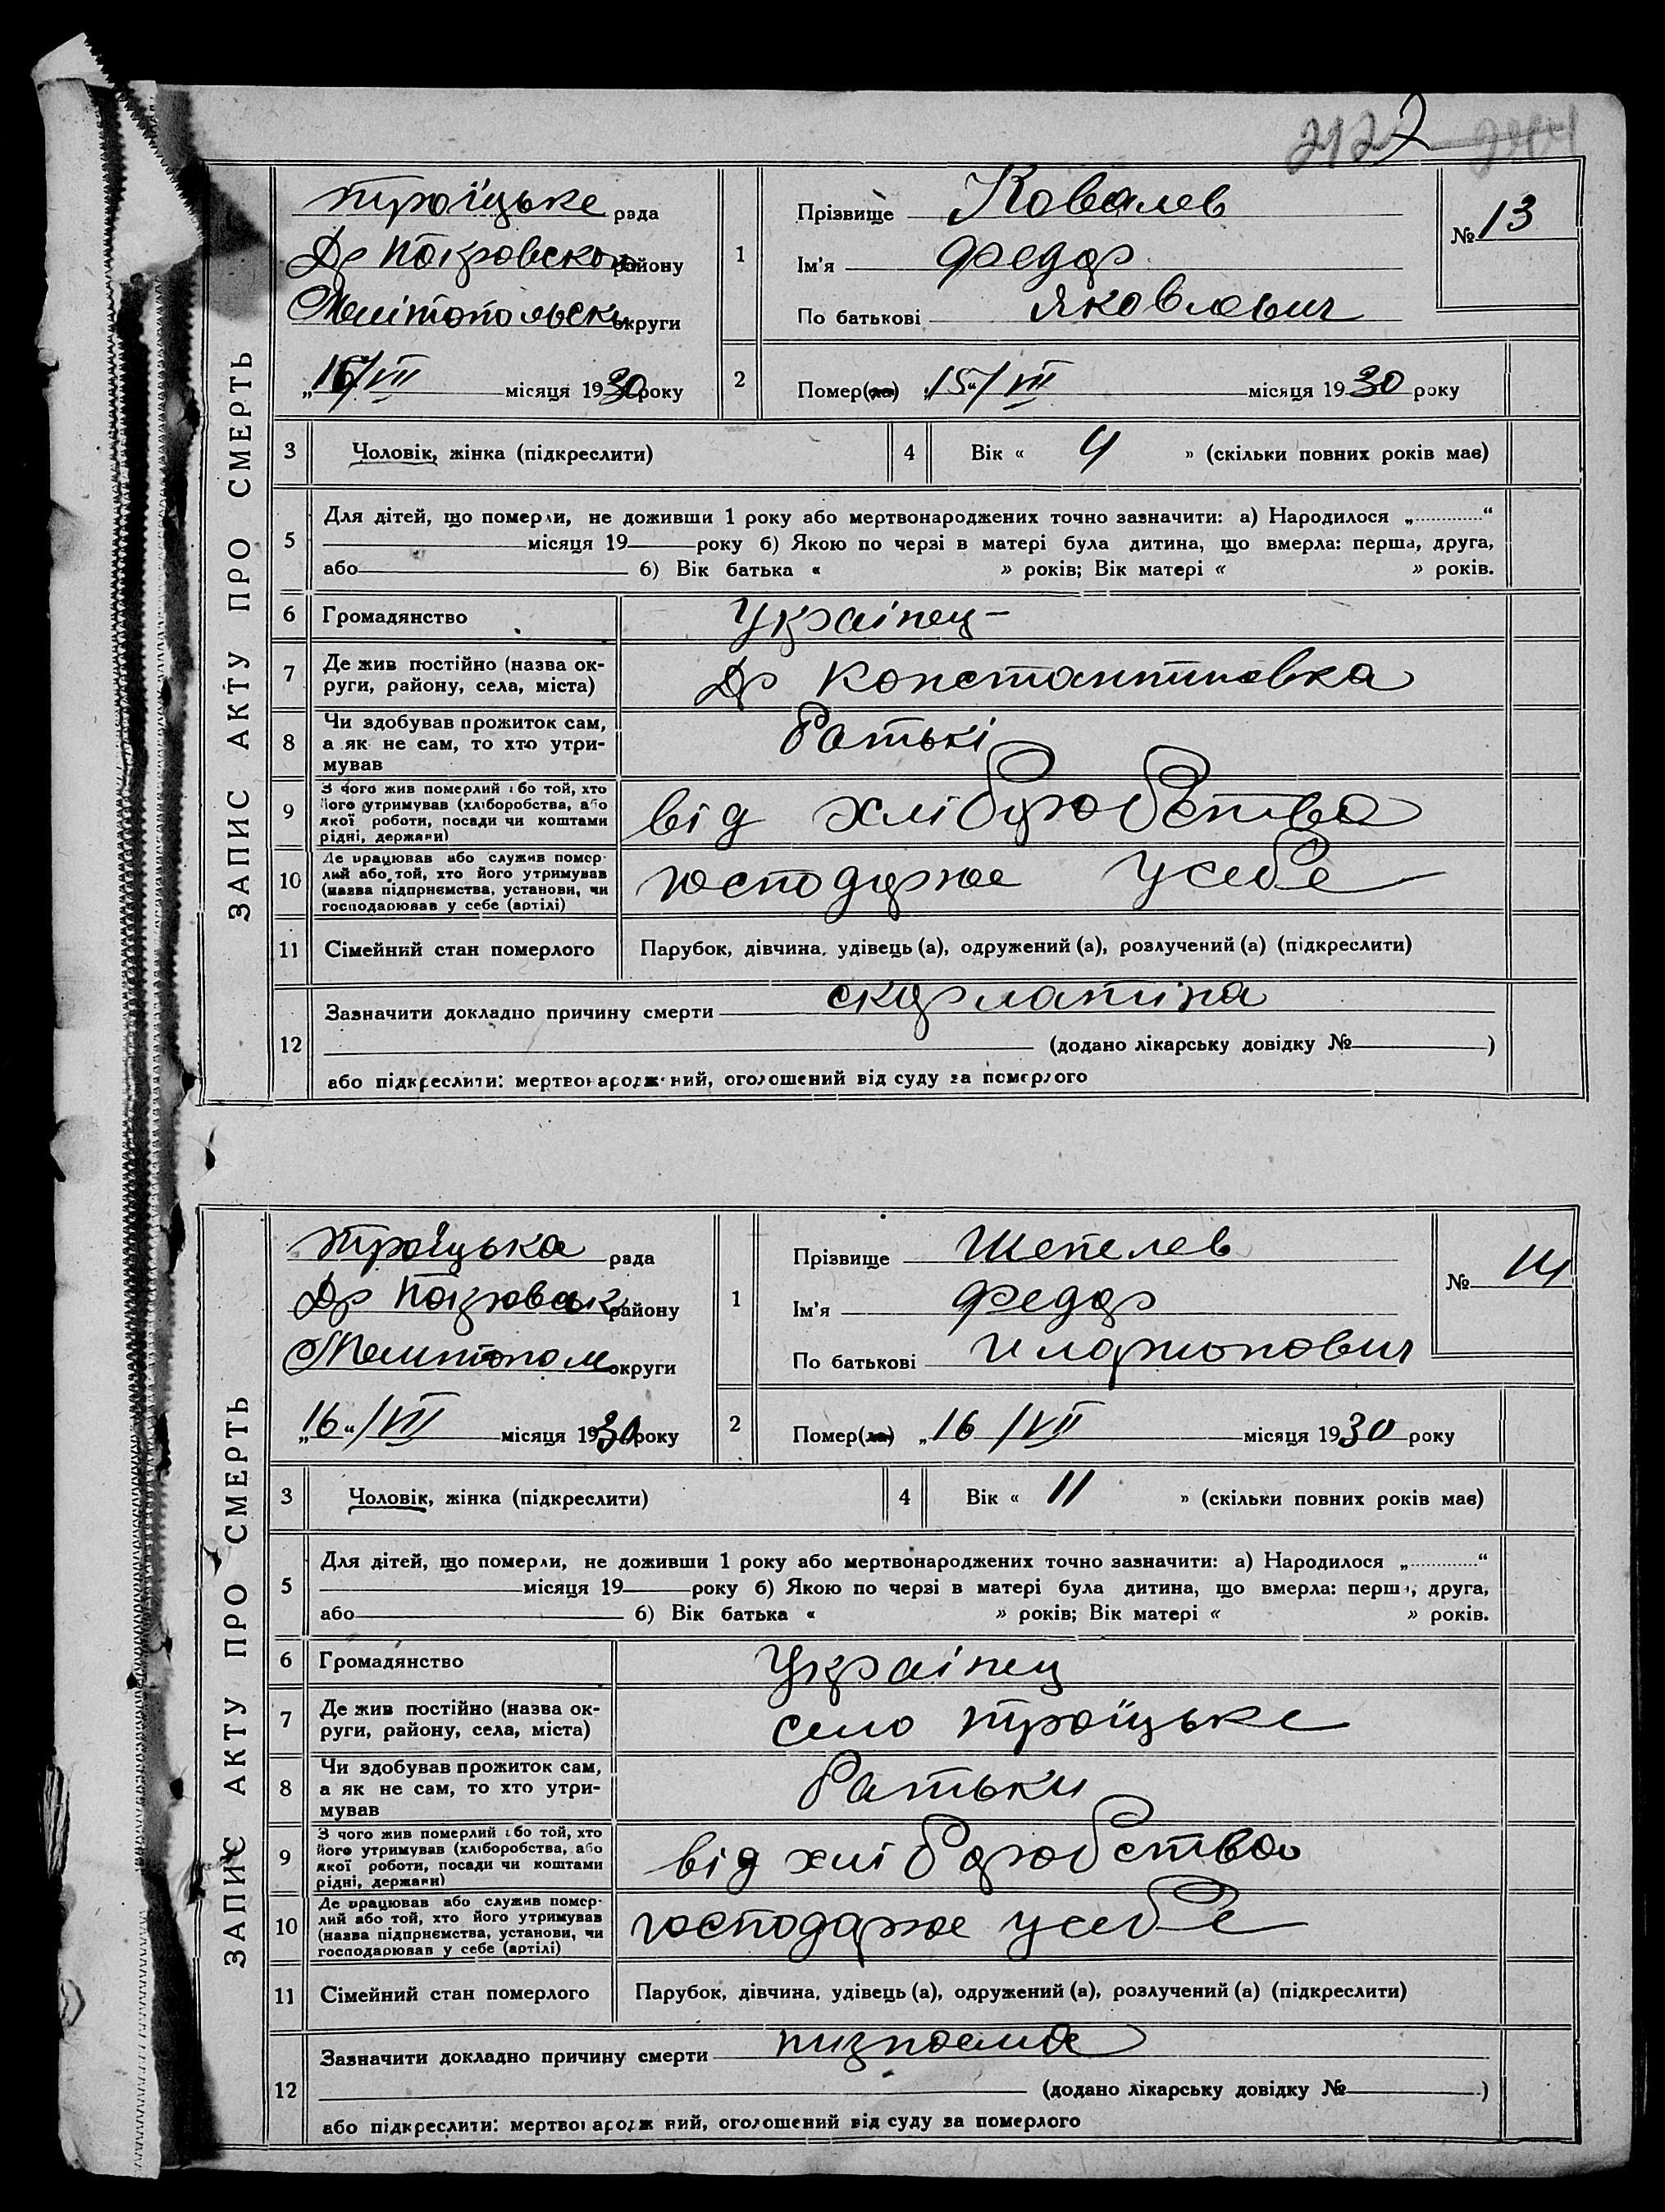 2122 2304
ЗАПИС АКТУ ПРО СМЕРТЬ
Троїцьке рада
Др Покровського району
Мелітопольськ округи
„16/VII місяця 1930 року
1
Прізвище Ковалев
Ім'я Федор
По батькові Яковлевич
№ 13
2
Помер(ла) „15"/VII місяця 1930 року
3 Чоловік, жінка (підкреслити)
4 Вік « 4 » (скільки повних років має)
5
Для дітей, що померли, не доживши 1 року або мертвонароджених точно зазначити: а) Народилося „............“
місяця 19 року б) Якою по черзі в матері була дитина, що вмерла: перша, друга,
або б) Вік батька « » років; Вік матері « » років.
6 Громадянство Українец
7 Де жив постійно (назва ок-
руги, району, села, міста) Др Константиновка
8 Чи здобував прожиток сам,
а як не сам, то хто утри-
мував Батькі
9 З чого жив померлий або той, хто
його утримував (хліборобства, або
якої роботи, посади чи коштами
рідні, держави) від хліборобства
10 Де працював або служив помер-
лий або той, хто його утримував
(назва підприємства, установи, чи
господарював у себе (артілі) господарює усебе
11 Сімейний стан померлого Парубок, дівчина, удівець (а), одружений (а), розлучений (а) (підкреслити)
12
Зазначити докладно причину смерти скарлатина
(додано лікарську довідку № )
або підкреслити: мертвонароджений, оголошений від суду за померлого
ЗАПИС АКТУ ПРО СМЕРТЬ
Троїцька рада
Др Покровськ району
Мелитопол округи
„16"/VII місяця 1930 року
1
Прізвище Шепелев
Ім'я Федор
По батькові Иларионович
№ 14
2
Помер(ла) „16 /VII місяця 1930 року
3 Чоловік, жінка (підкреслити)
4 Вік « 11 » (скільки повних років має)
5
Для дітей, що померли, не доживши 1 року або мертвонароджених точно зазначити: а) Народилося „............“
місяця 19 року б) Якою по черзі в матері була дитина, що вмерла: перша, друга,
або б) Вік батька « » років; Вік матері « » років.
6 Громадянство Українец
7 Де жив постійно (назва ок-
руги, району, села, міста) село Троїцьке
8 Чи здобував прожиток сам,
а як не сам, то хто утри-
мував Батьки
9 З чого жив померлий або той, хто
його утримував (хліборобства, або
якої роботи, посади чи коштами
рідні, держави) від хліборобства
10 Де працював або служив помер-
лий або той, хто його утримував
(назва підприємства, установи, чи
господарював у себе (артілі) господарює усебе
11 Сімейний стан померлого Парубок, дівчина, удівець (а), одружений (а), розлучений (а) (підкреслити)
12
Зазначити докладно причину смерти
(додано лікарську довідку № )
або підкреслити: мертвонароджений, оголошений від суду за померлого